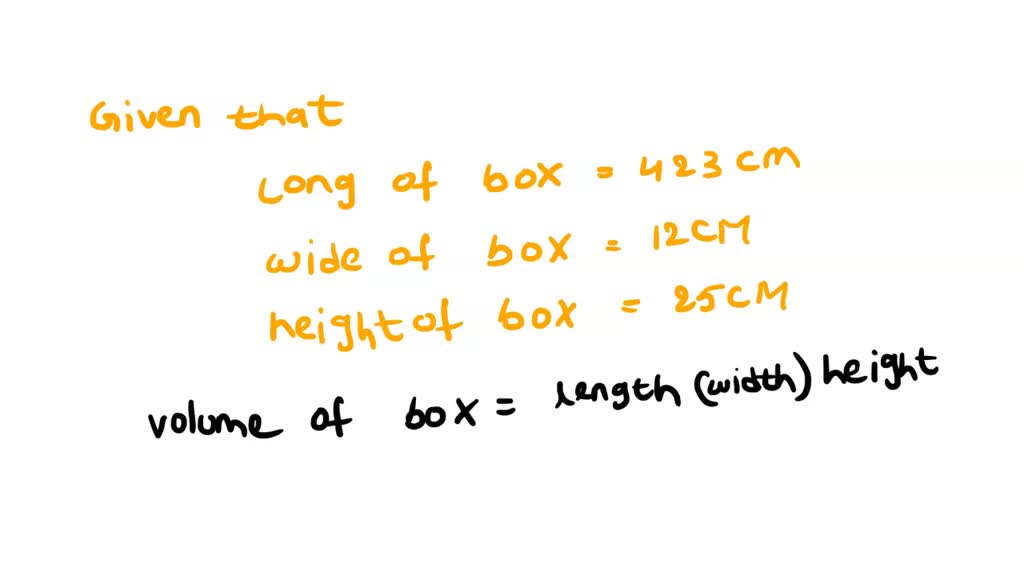 Given that
Long of box = 423 cm
wide of box = 12CM
height of box = 25CM
volume of box = length (width) height